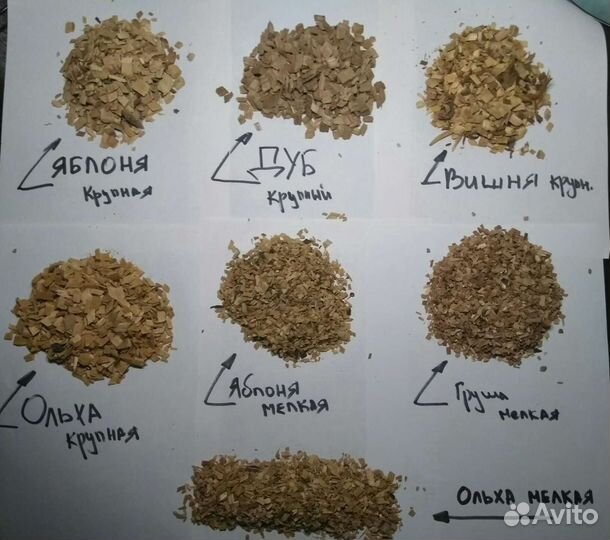 ЯБЛОНЯ
крупная
ДУБ
крупный
ВИШНЯ крупн.
Ольха
крупная
Яблоня
мелкая
Груша
мелкая
Ольха мелкая
Avito